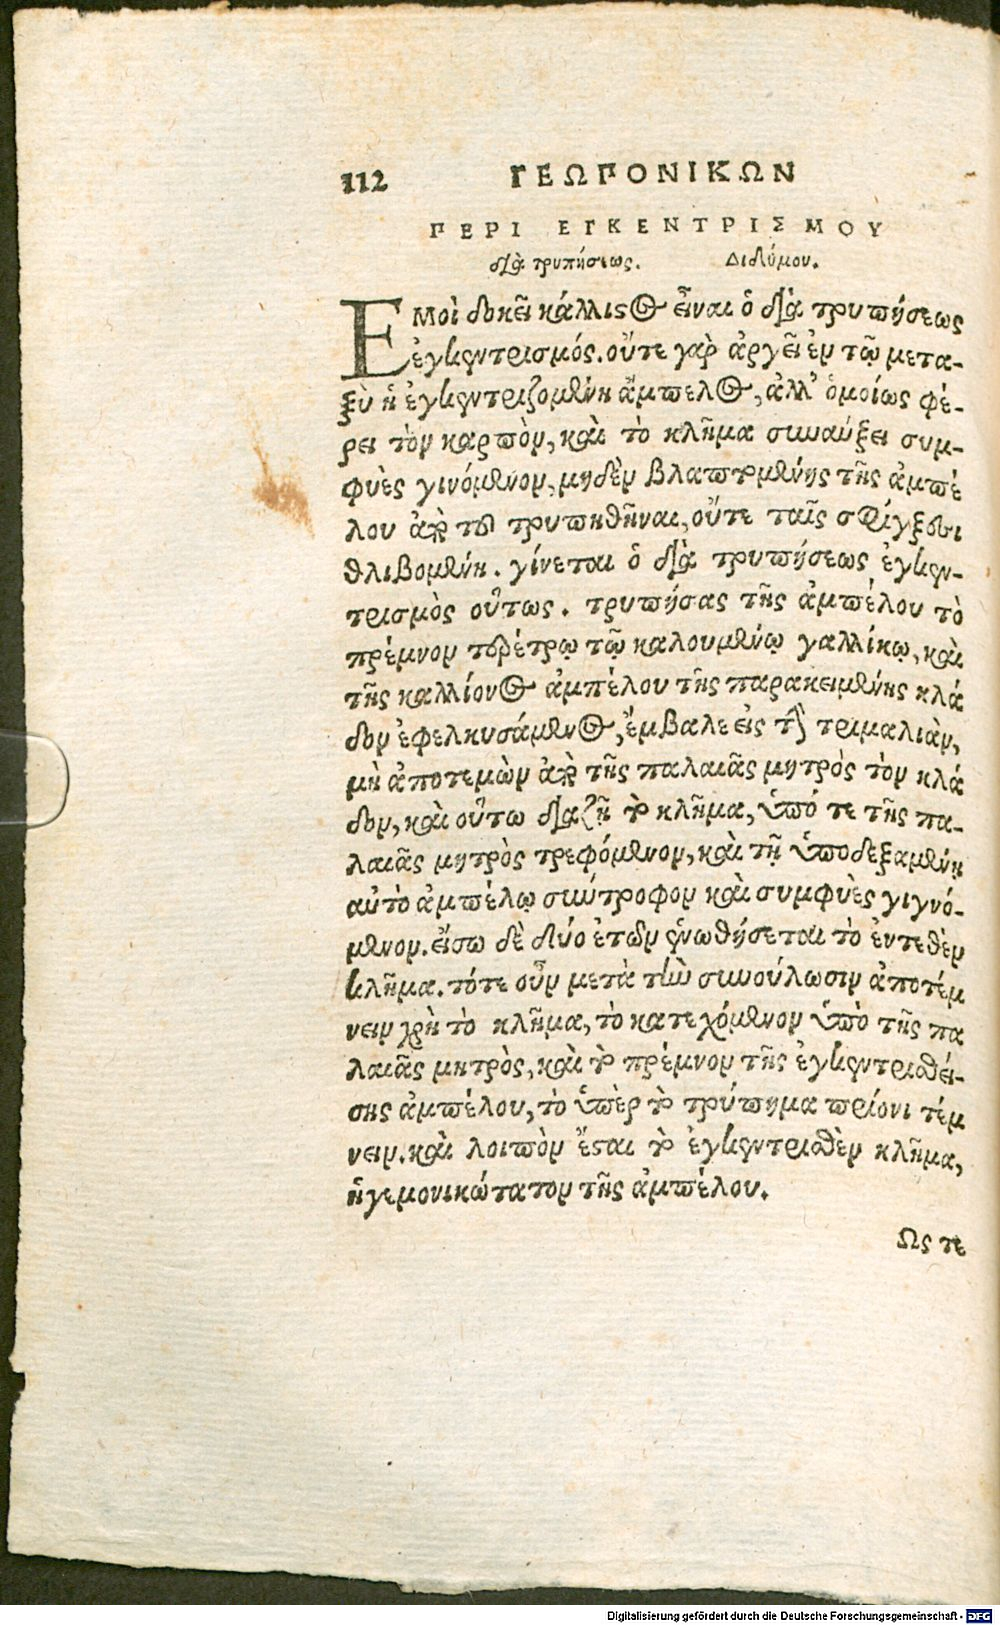 112 ΓΕΩΠΟΝΙΚΩΝ
ΠΕΡΙ ΕΓΚΕΝΤΡΙΣΜΟΥ
διὰ τρυπήσεως. Διδύμου.
ΕΜοὶ δοκεῖ κάλλιστος εἶναι ὁ διὰ τρυπήσεως
ἐγκεντρισμός. οὔτε γὰρ ἀργεῖ ἐν τῷ μετα-
ξὺ ἡ ἐγκεντριζομένη ἄμπελος, ἀλλ' ὁμοίως φέ-
ρει τὸν καρπὸν, καὶ τὸ κλῆμα συναύξει συμ-
φυὲς γινόμενον, μηδὲν βλαπτομένης τῆς ἀμπέ
λου ἀπὸ τοῦ τρυπηθῆναι, οὔτε ταῖς σφίγξεσι
θλιβομένη. γίνεται ὁ διὰ τρυπήσεως ἐγκεν-
τρισμὸς οὕτως. τρυπήσας τῆς ἀμπέλου τὸ
πρέμνον τερέτρῳ τῷ καλουμένῳ γαλλίκῳ, καὶ
τῆς καλλίονος ἀμπέλου τῆς παρακειμένης κλά
δον ἐφελκυσάμενος, ἔμβαλε εἰς τὴν τριμαλιὰν,
μὴ ἀποτεμὼν ἀπὸ τῆς παλαιᾶς μητρὸς τὸν κλά
δον, καὶ οὕτω διαζῇ τὸ κλῆμα, ὑπό τε τῆς πα-
λαιᾶς μητρὸς τρεφόμενον, καὶ τῇ ὑποδεξαμένῃ
αὐτὸ ἀμπέλῳ σύντροφον καὶ συμφυὲς γιγνό-
μενον. εἴσω δὲ δύο ἐτῶν ἑνωθήσεται τὸ ἐντεθὲν
κλῆμα. τότε οὖν μετὰ τὴν συνούλωσιν ἀποτέμ
νειν χρὴ τὸ κλῆμα, τὸ κατεχόμενον ὑπὸ τῆς πα
λαιᾶς μητρὸς, καὶ τὸ πρέμνον τῆς ἐγκεντρισθεί-
σης ἀμπέλου, τὸ ὑπὲρ τὸ τρύπημα πρίονι τέμ
νειν. καὶ λοιπὸν ἔσται τὸ ἐγκεντρισθὲν κλῆμα,
ἡγεμονικώτατον τῆς ἀμπέλου.
Ὥς τε
Digitalisierung gefördert durch die Deutsche Forschungsgemeinschaft - DFG